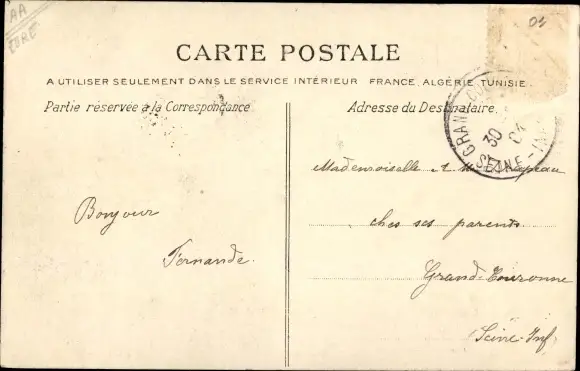 AA
EURE
04
CARTE POSTALE
A UTILISER SEULEMENT DANS LE SERVICE INTÉRIEUR FRANCE, ALGÉRIE, TUNISIE.
Partie réservée à la Correspondance
Adresse du Destinataire.
GRAND
30
04
SEINE-INF
Bonjour
Fernande.
Mademoiselle A
ches ses parents
Grand-Couronne
Seine-Inf